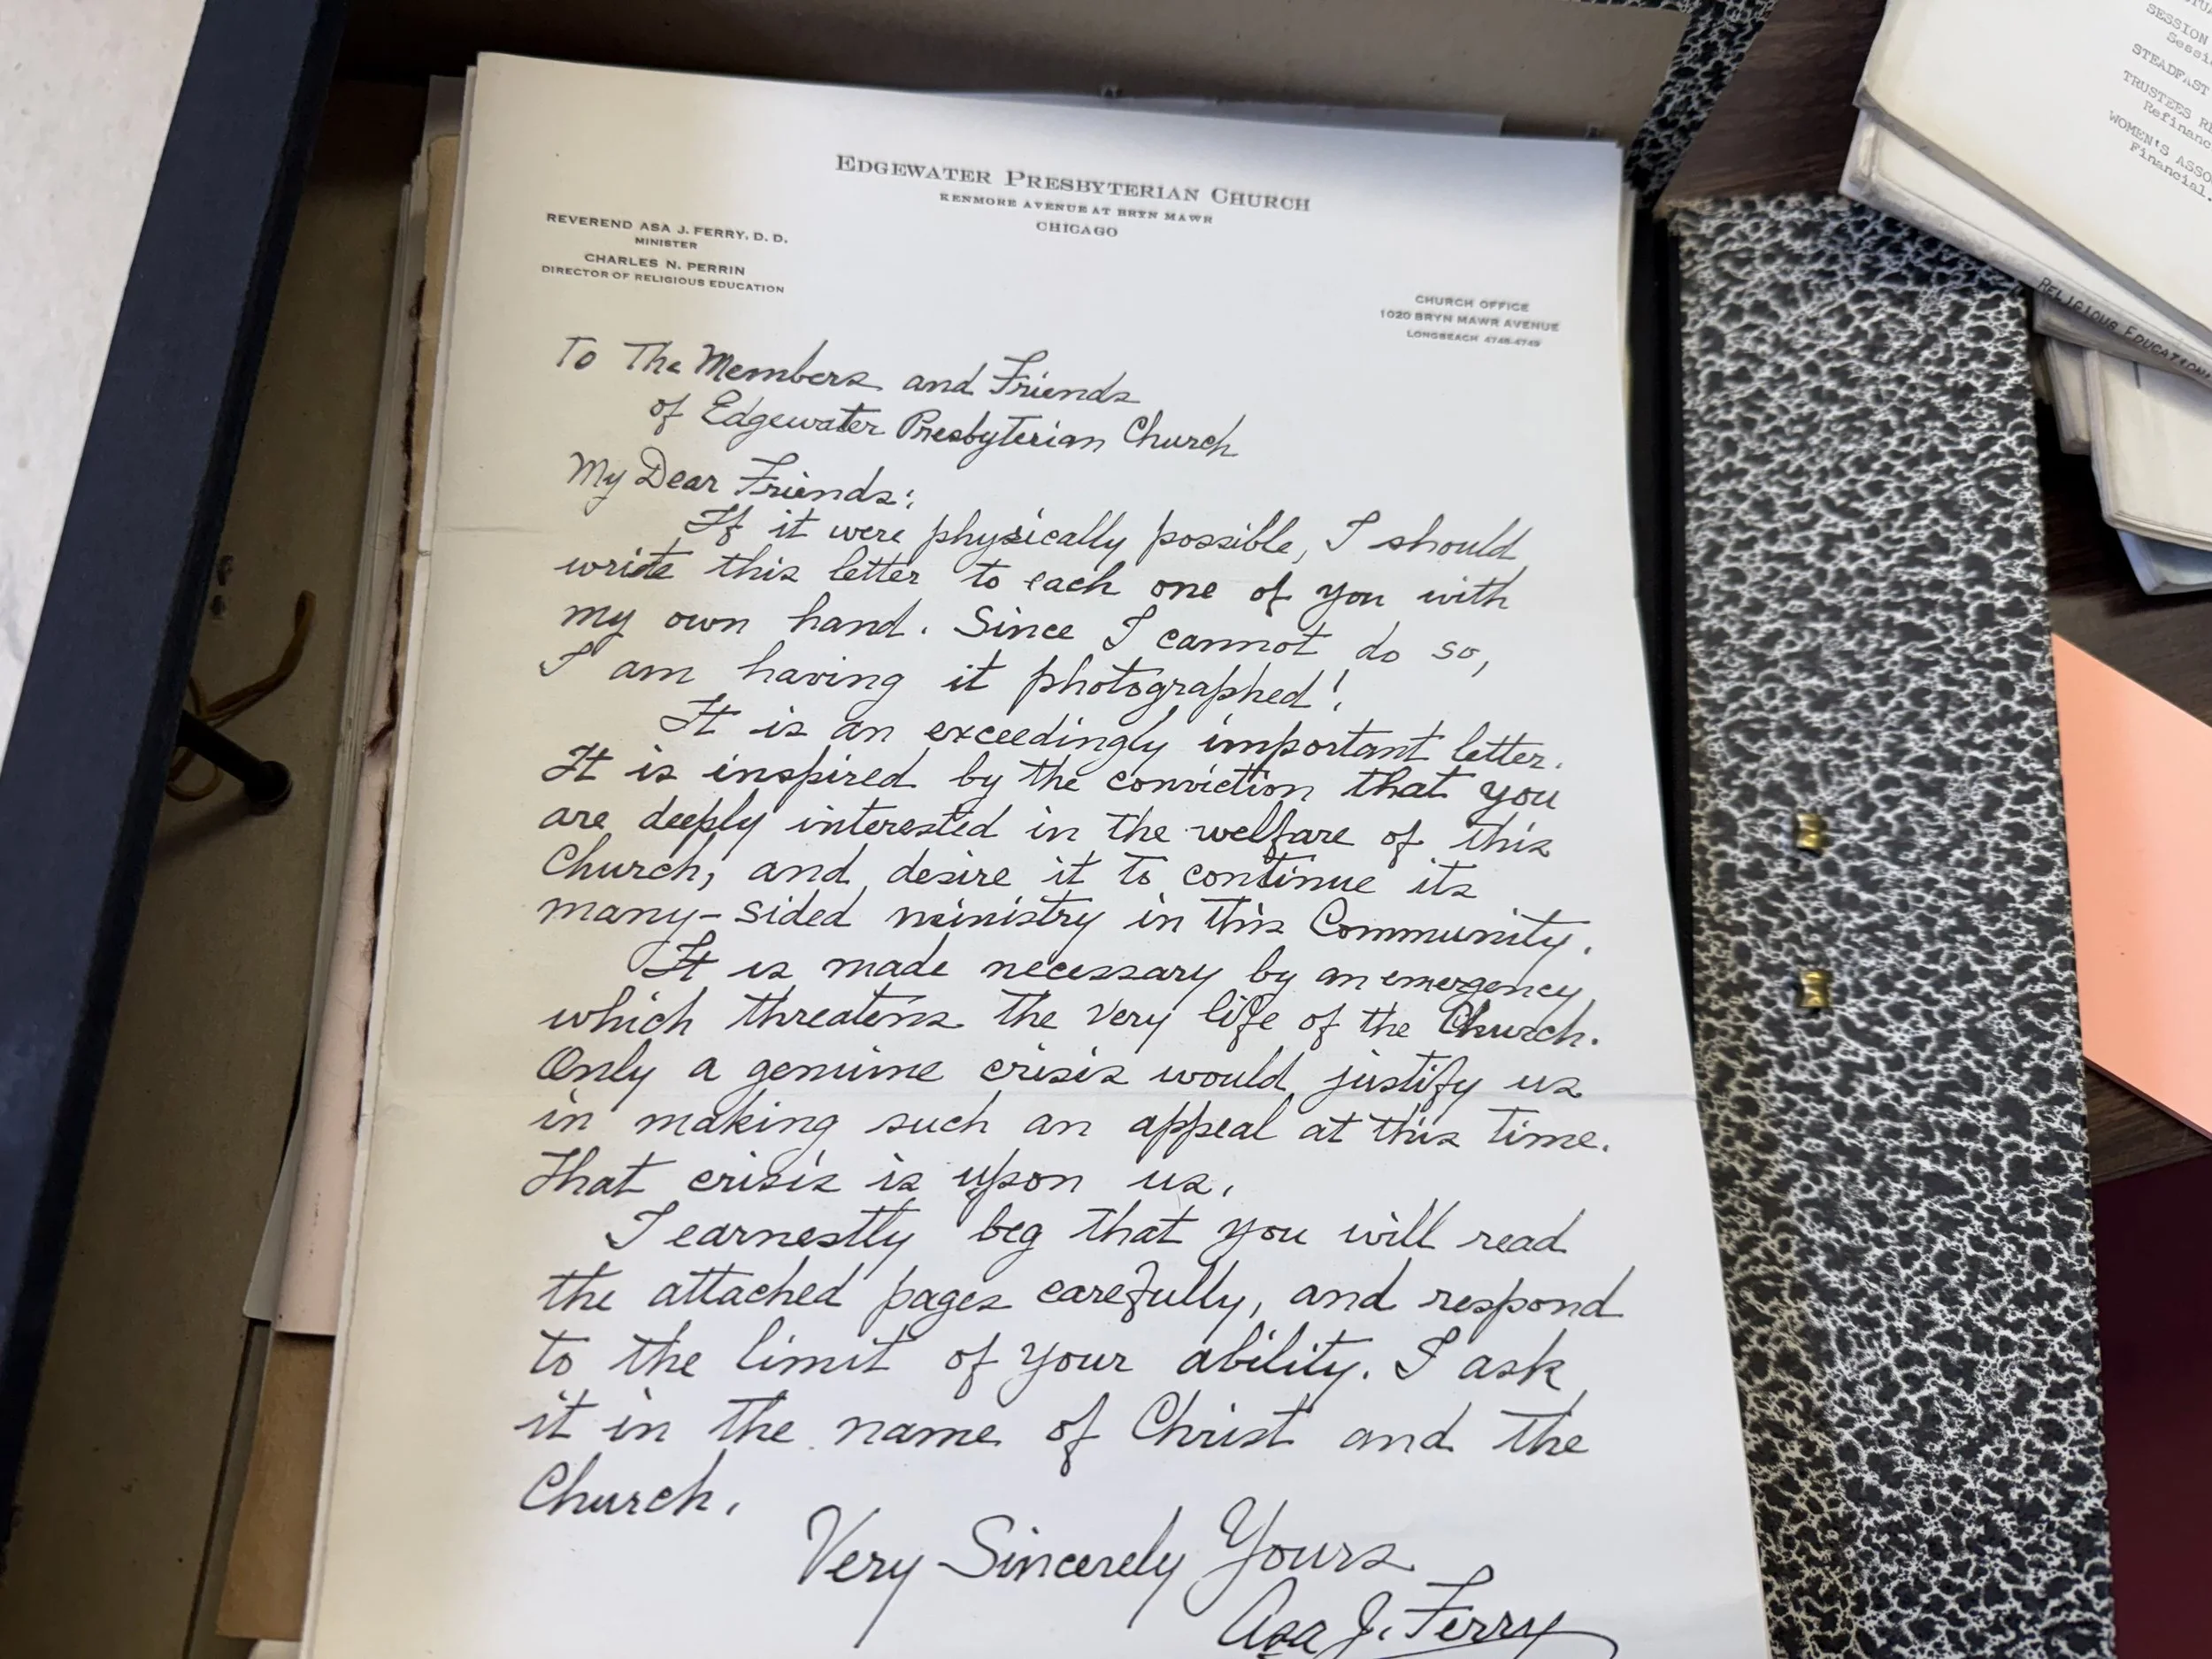 EDGEWATER PRESBYTERIAN CHURCH
KENMORE AVENUE AT BRYN MAWR
CHICAGO
REVEREND ASA J. FERRY, D. D.
MINISTER
CHARLES N. PERRIN
DIRECTOR OF RELIGIOUS EDUCATION
CHURCH OFFICE
1020 BRYN MAWR AVENUE
LONGBEACH 4748-4749
To The Members and Friends
of Edgewater Presbyterian Church
My Dear Friends:
If it were physically possible, I should
write this letter to each one of you with
my own hand. Since I cannot do so,
I am having it photographed!
It is an exceedingly important letter.
It is inspired by the conviction that you
are deeply interested in the welfare of this
Church, and desire it to continue its
many-sided ministry in this Community.
It is made necessary by an emergency
which threatens the very life of the Church.
Only a genuine crisis would justify us
in making such an appeal at this time.
That crisis is upon us.
I earnestly beg that you will read
the attached pages carefully, and respond
to the limit of your ability. I ask
it in the name of Christ and the
Church.
Very Sincerely Yours
Asa J. Ferry
SESSION
STEADFAST
TRUSTEES
WOMEN'S
RELIGIOUS EDUCATION